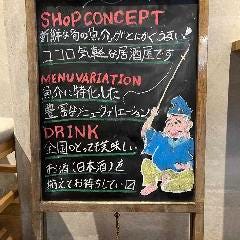 SHOP CONCEPT
新鮮な旬の魚介がとにかくうまい
ココロ気軽な居酒屋です
MENU VARIATION
魚介に特化した
豊富なメニューヴァリエーション
DRINK
全国のとっても美味しい
お酒(日本酒)を
揃えてお待ちしてい□